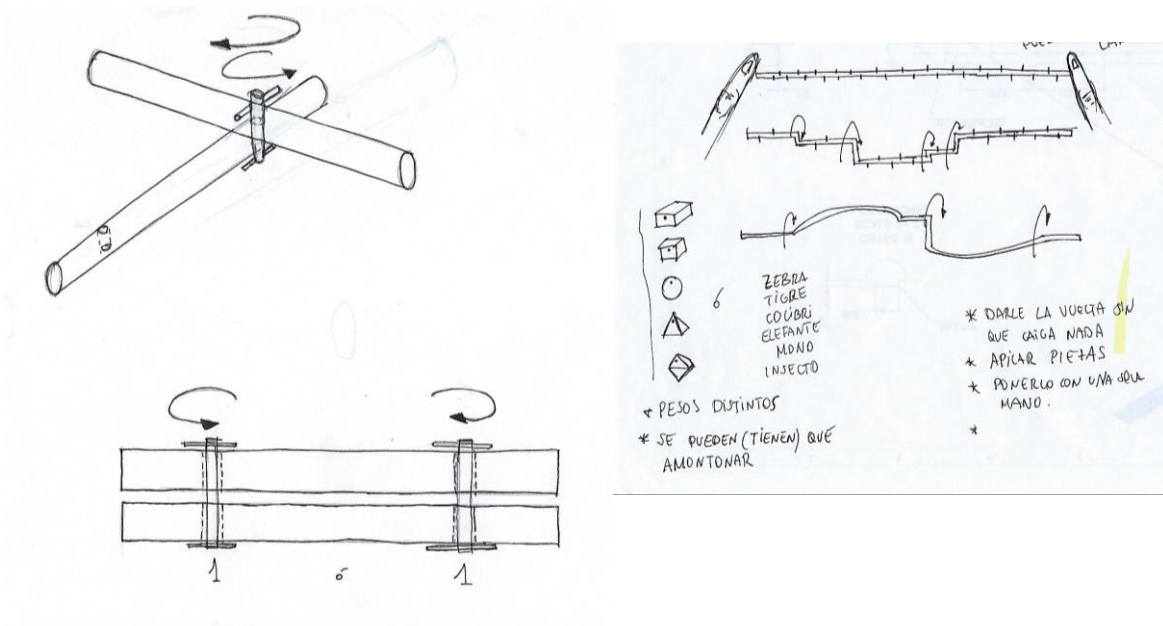 1 ó 1
ó
ZEBRA
TIGRE
COLIBRI
ELEFANTE
MONO
INSECTO
* PESOS DISTINTOS
* SE PUEDEN (TIENEN) QUÉ
AMONTONAR
* DARLE LA VUELTA SIN
QUE CAIGA NADA
* APILAR PIEZAS
* PONERLO CON UNA SOLA
MANO.
*